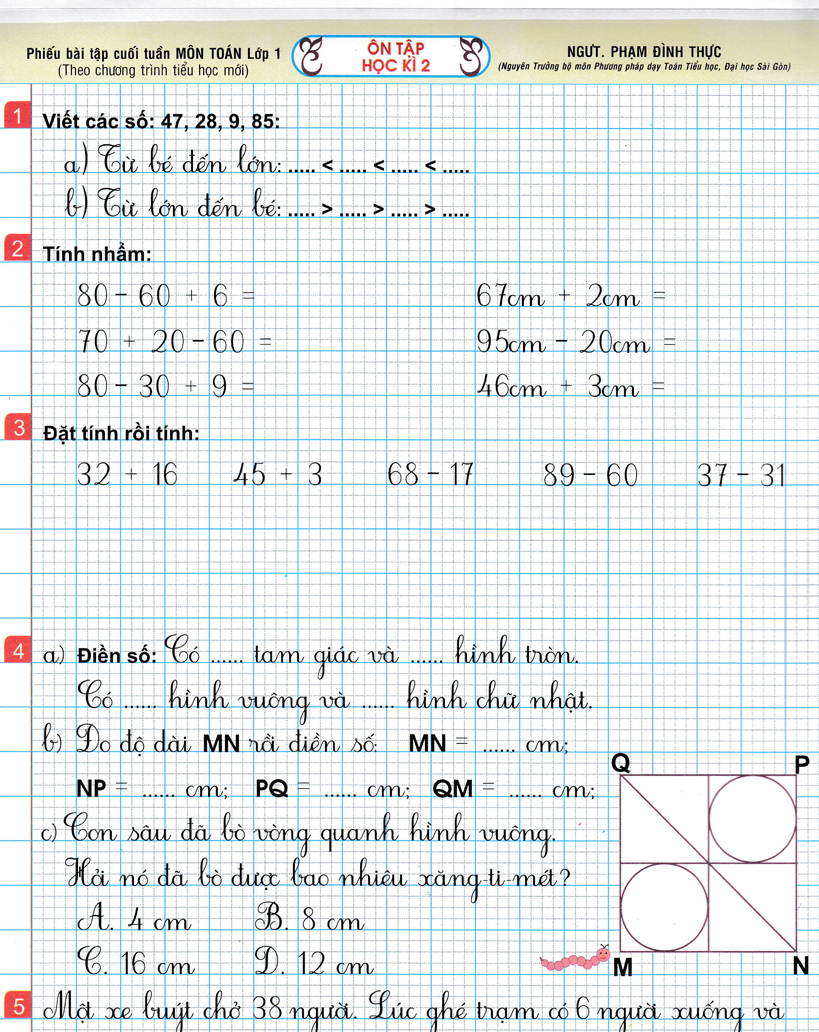 Phiếu bài tập cuối tuần MÔN TOÁN Lớp 1
(Theo chương trình tiểu học mới)
ÔN TẬP
HỌC KÌ 2
NGƯT. PHẠM ĐÌNH THỰC
(Nguyên Trưởng bộ môn Phương pháp dạy Toán Tiểu học, Đại học Sài Gòn)
1 Viết các số: 47, 28, 9, 85:
a) Từ bé đến lớn: ..... < ..... < ..... < .....
b) Từ lớn đến bé: ..... > ..... > ..... > .....
2 Tính nhẩm:
80 - 60 + 6 = 67cm + 2cm =
70 + 20 - 60 = 95cm - 20cm =
80 - 30 + 9 = 46cm + 3cm =
3 Đặt tính rồi tính:
32 + 16 45 + 3 68 - 17 89 - 60 37 - 31
4 a) Điền số: Có ...... tam giác và ...... hình tròn.
Có ...... hình vuông và ...... hình chữ nhật.
b) Đo độ dài MN rồi điền số: MN = ...... cm;
NP = ...... cm; PQ = ...... cm; QM = ...... cm;
Q P
c) Con sâu đã bò vòng quanh hình vuông.
Hỏi nó đã bò được bao nhiêu xăng-ti-mét?
A. 4 cm B. 8 cm
C. 16 cm D. 12 cm
M N
5 Một xe buýt chở 38 người. Lúc ghé trạm có 6 người xuống và